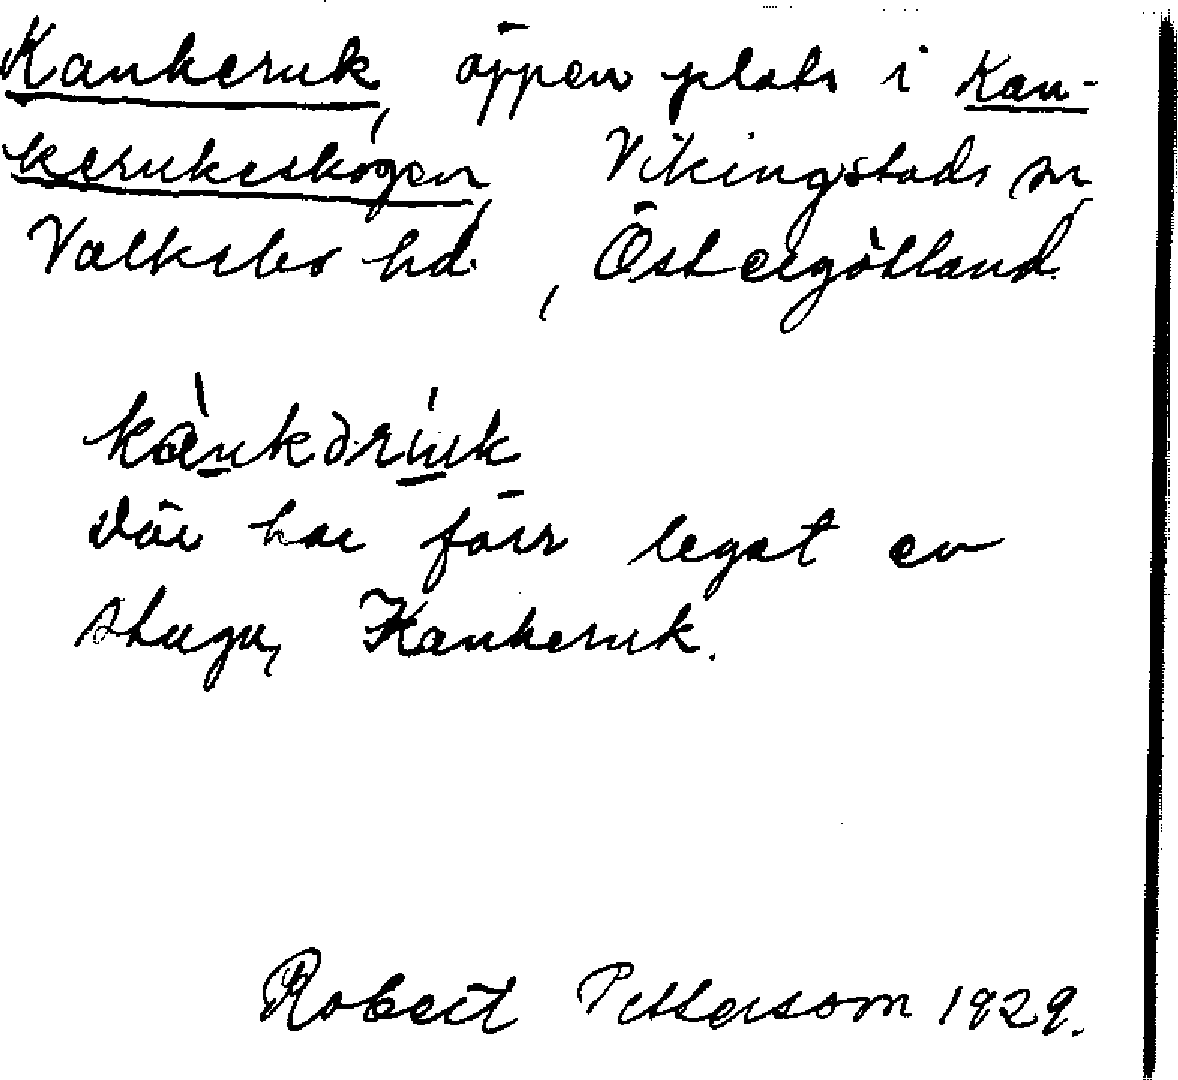 Kankeruk, öppen plats i Kan-
kerukeskogen, Vikingstads sn,
Valkebo hd., Östergötland.
kànkərúk
Där har förr legat en
stuga, Kankeruk.
Robert Pettersson 1929.